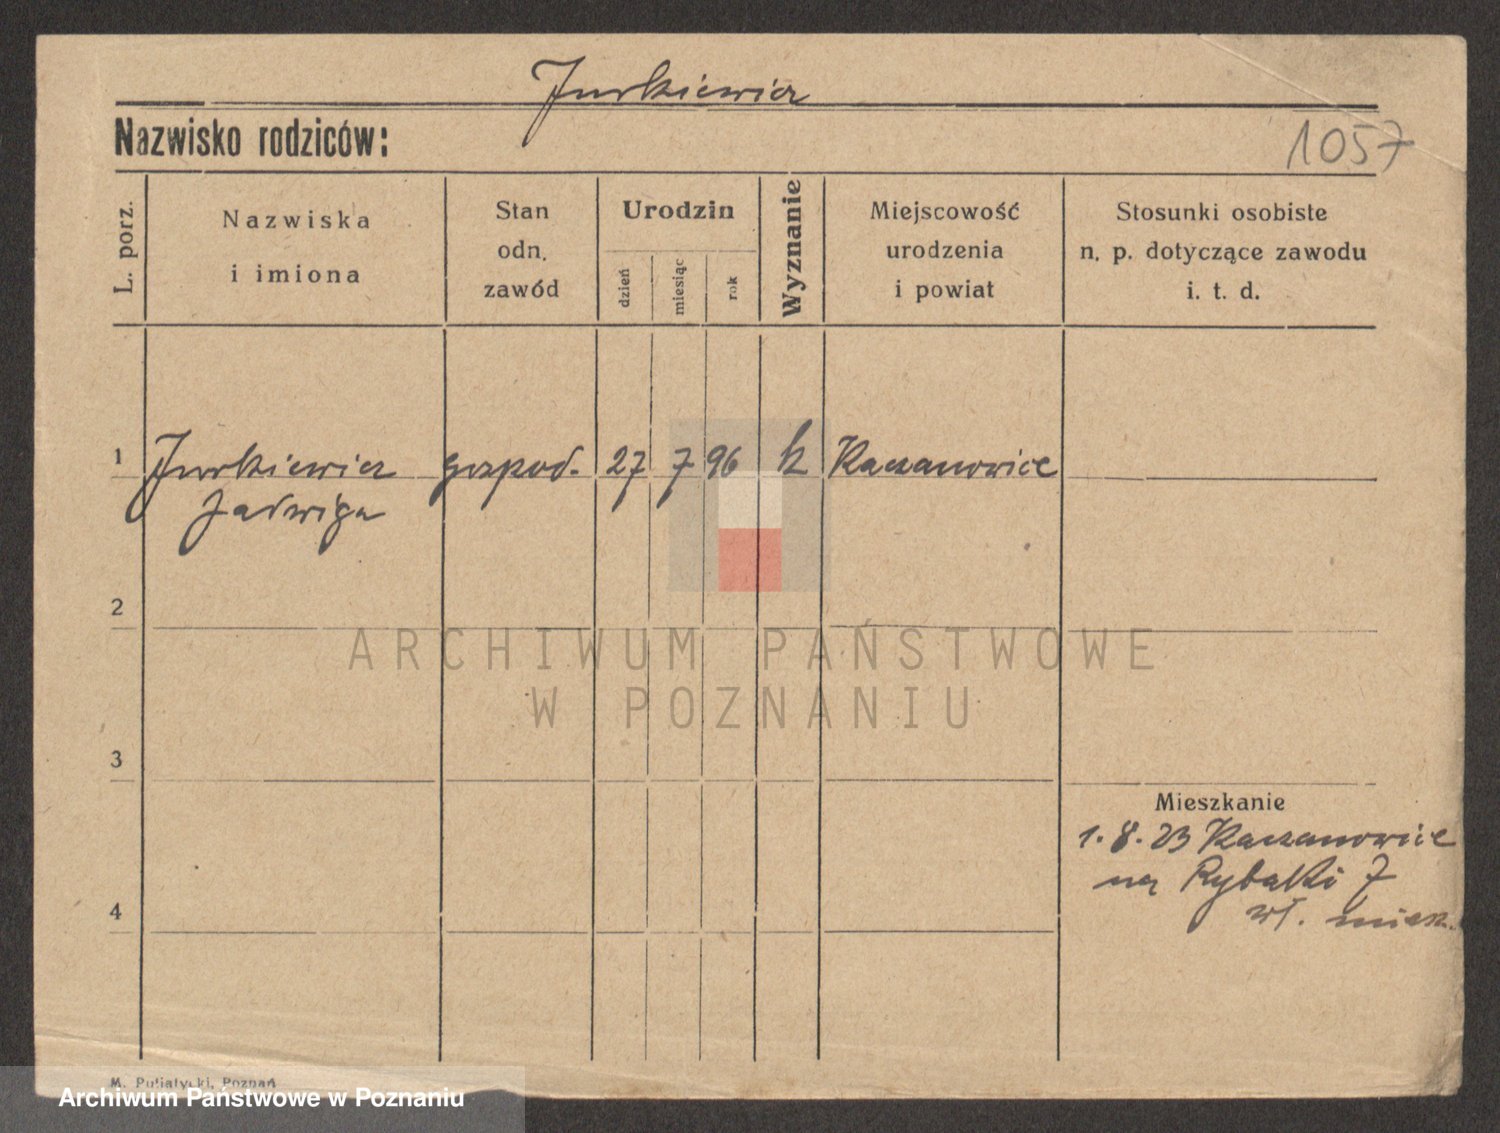 Jurkiewicz
Nazwisko rodziców:
1057
L. porz.
Nazwiska
i imiona
Stan
odn.
zawód
Urodzin
dzień
miesiąc
rok
Wyznanie
Miejscowość
urodzenia
i powiat
Stosunki osobiste
n. p. dotyczące zawodu
i. t. d.
1 Jurkiewicz gospod. 27 7 96 k Kaczanowice
Jadwiga
2
ARCHIWUM PAŃSTWOWE
W POZNANIU
3
Mieszkanie
1. 8. 23 Kaczanowice
na Rybaki 7
wł. miesz.
4
M. Putiatycki, Poznań
Archiwum Państwowe w Poznaniu